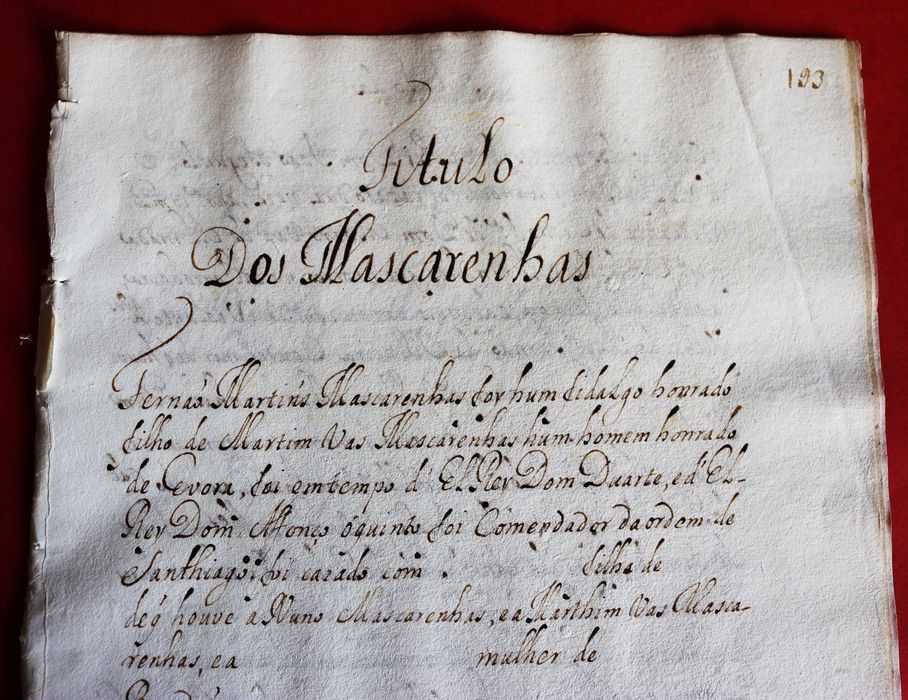 193
Titulo
Dos Mascarenhas
Fernaõ Martins Mascarenhas foy hum fidalgo honrado
filho de Martim Vas Mascarenhas hum homem honrado
de Evora, foi em tempo d'El Rey Dom Duarte, e d'El-
Rey Dom Affonço o quinto foi Comendador da ordem de
Santhiago, foi cazado com filha de
de q̃ houve a Nuno Mascarenhas, e a Marthim Vas Masca-
renhas, e a mulher de